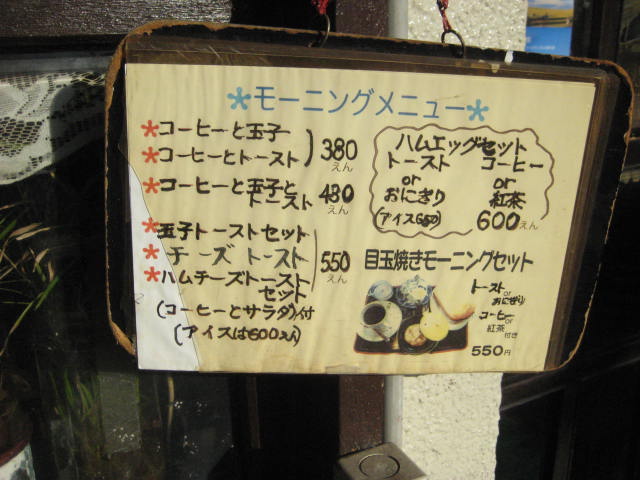 *モーニングメニュー*
*コーヒーと玉子
*コーヒーとトースト
380えん
*コーヒーと玉子と
トースト
430えん
*玉子トーストセット
*チーズトースト
*ハムチーズトースト
セット
550えん
(コーヒーとサラダ)付
(アイスは600えん)
ハムエッグセット
トースト コーヒー
or or
おにぎり 紅茶
(アイス650) 600えん
目玉焼きモーニングセット
トースト
or
おにぎり
コーヒー
or
紅茶付き
550円